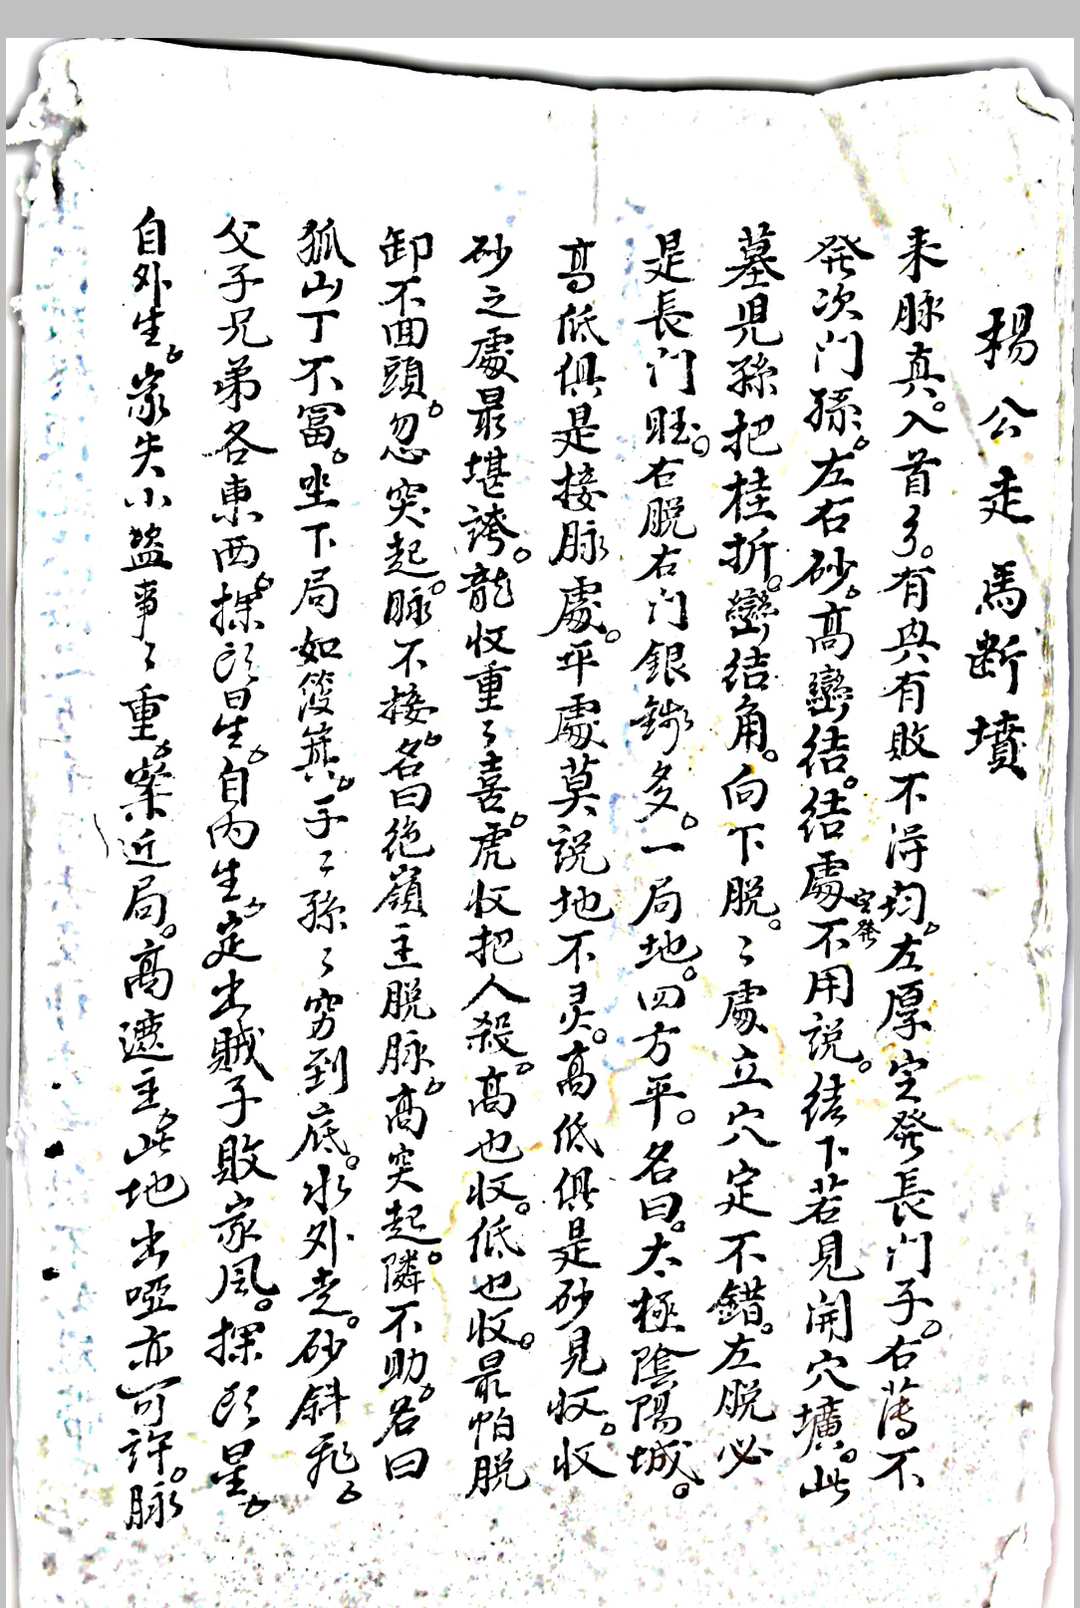 楊公走馬断墳
来脉真。入首多。有興有敗不淂均。左厚定發長门子。右薄不
發次门孫。左右砂。高巒结。结處不用説。结下若見開穴壙。此
定發
墓児孫把桂折。巒结角。向下脱。〻處立穴定不錯。左脱必
是長门旺。右脱右门銀錢多。一局地。四方平。名曰。太極陰陽城。
高低俱是接脉處。平處莫説地不灵。高低俱是砂見收。收
砂之處最堪誇。龍收重〻喜。虎收把人殺。高也收。低也收。最怕脱
卸不回頭。忽突起。脉不接。名曰绝嶺主脱脉。高突起。隣不助。名曰
狐山丁不冨。坐下局如筊箕。子〻孫〻穷到底。水外走。砂斜飛。
父子兄弟各東西。探頭星。自内生。定出賊子敗家風。探頭星。
自外生。家失小盜事〻重。案近局。高遮主。此地出啞亦可許。脉